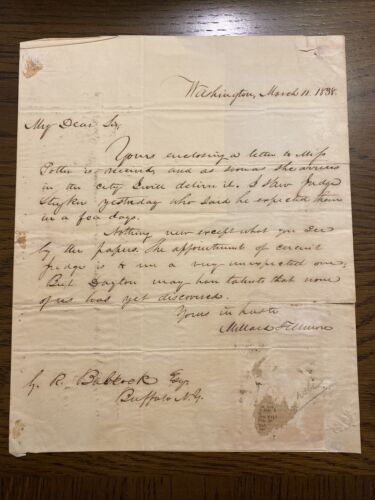 Washington, March 11. 1838.
My Dear Sir,
Yours enclosing a letter to Miss
Potter is received, and as soon as she arrives
in the city I will deliver it. I saw Judge
Stryker yesterday who said he expected them
in a few days.
Nothing new except what you see
by the papers. The appointment of circuit
judge is to me a very unexpected one,
But Dayton may have talents that none
of us has yet discovered.
Yours in haste
Millard Fillmore
G. R. Babcock Esq.
Buffalo N.Y.